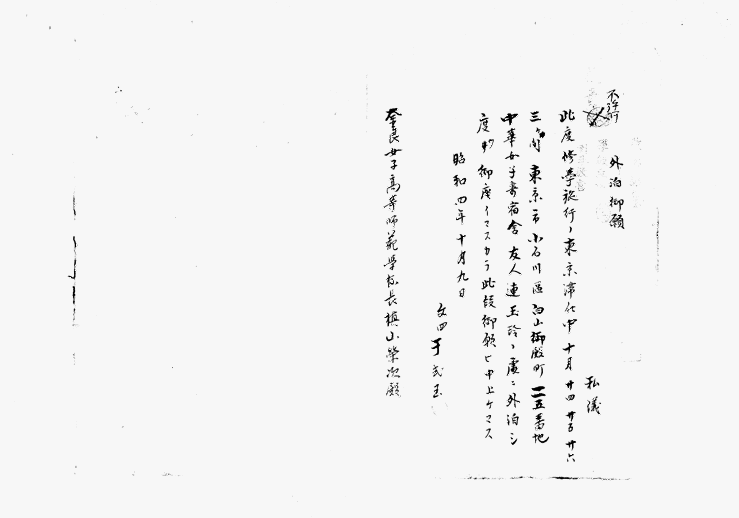 不許可
外泊御願
私儀
此度修學旅行ノ東京滞在中十月廿四廿五廿六
三日間東京市小石川區白山御殿町一一五番地
中華女子寄宿舎友人連玉玲ノ處ニ外泊シ
度 御座イマスカラ此段御願ヒ申上ケマス
昭和四年十月九日
文四 于式玉
奈良女子高等師範學校長槇山榮次殿